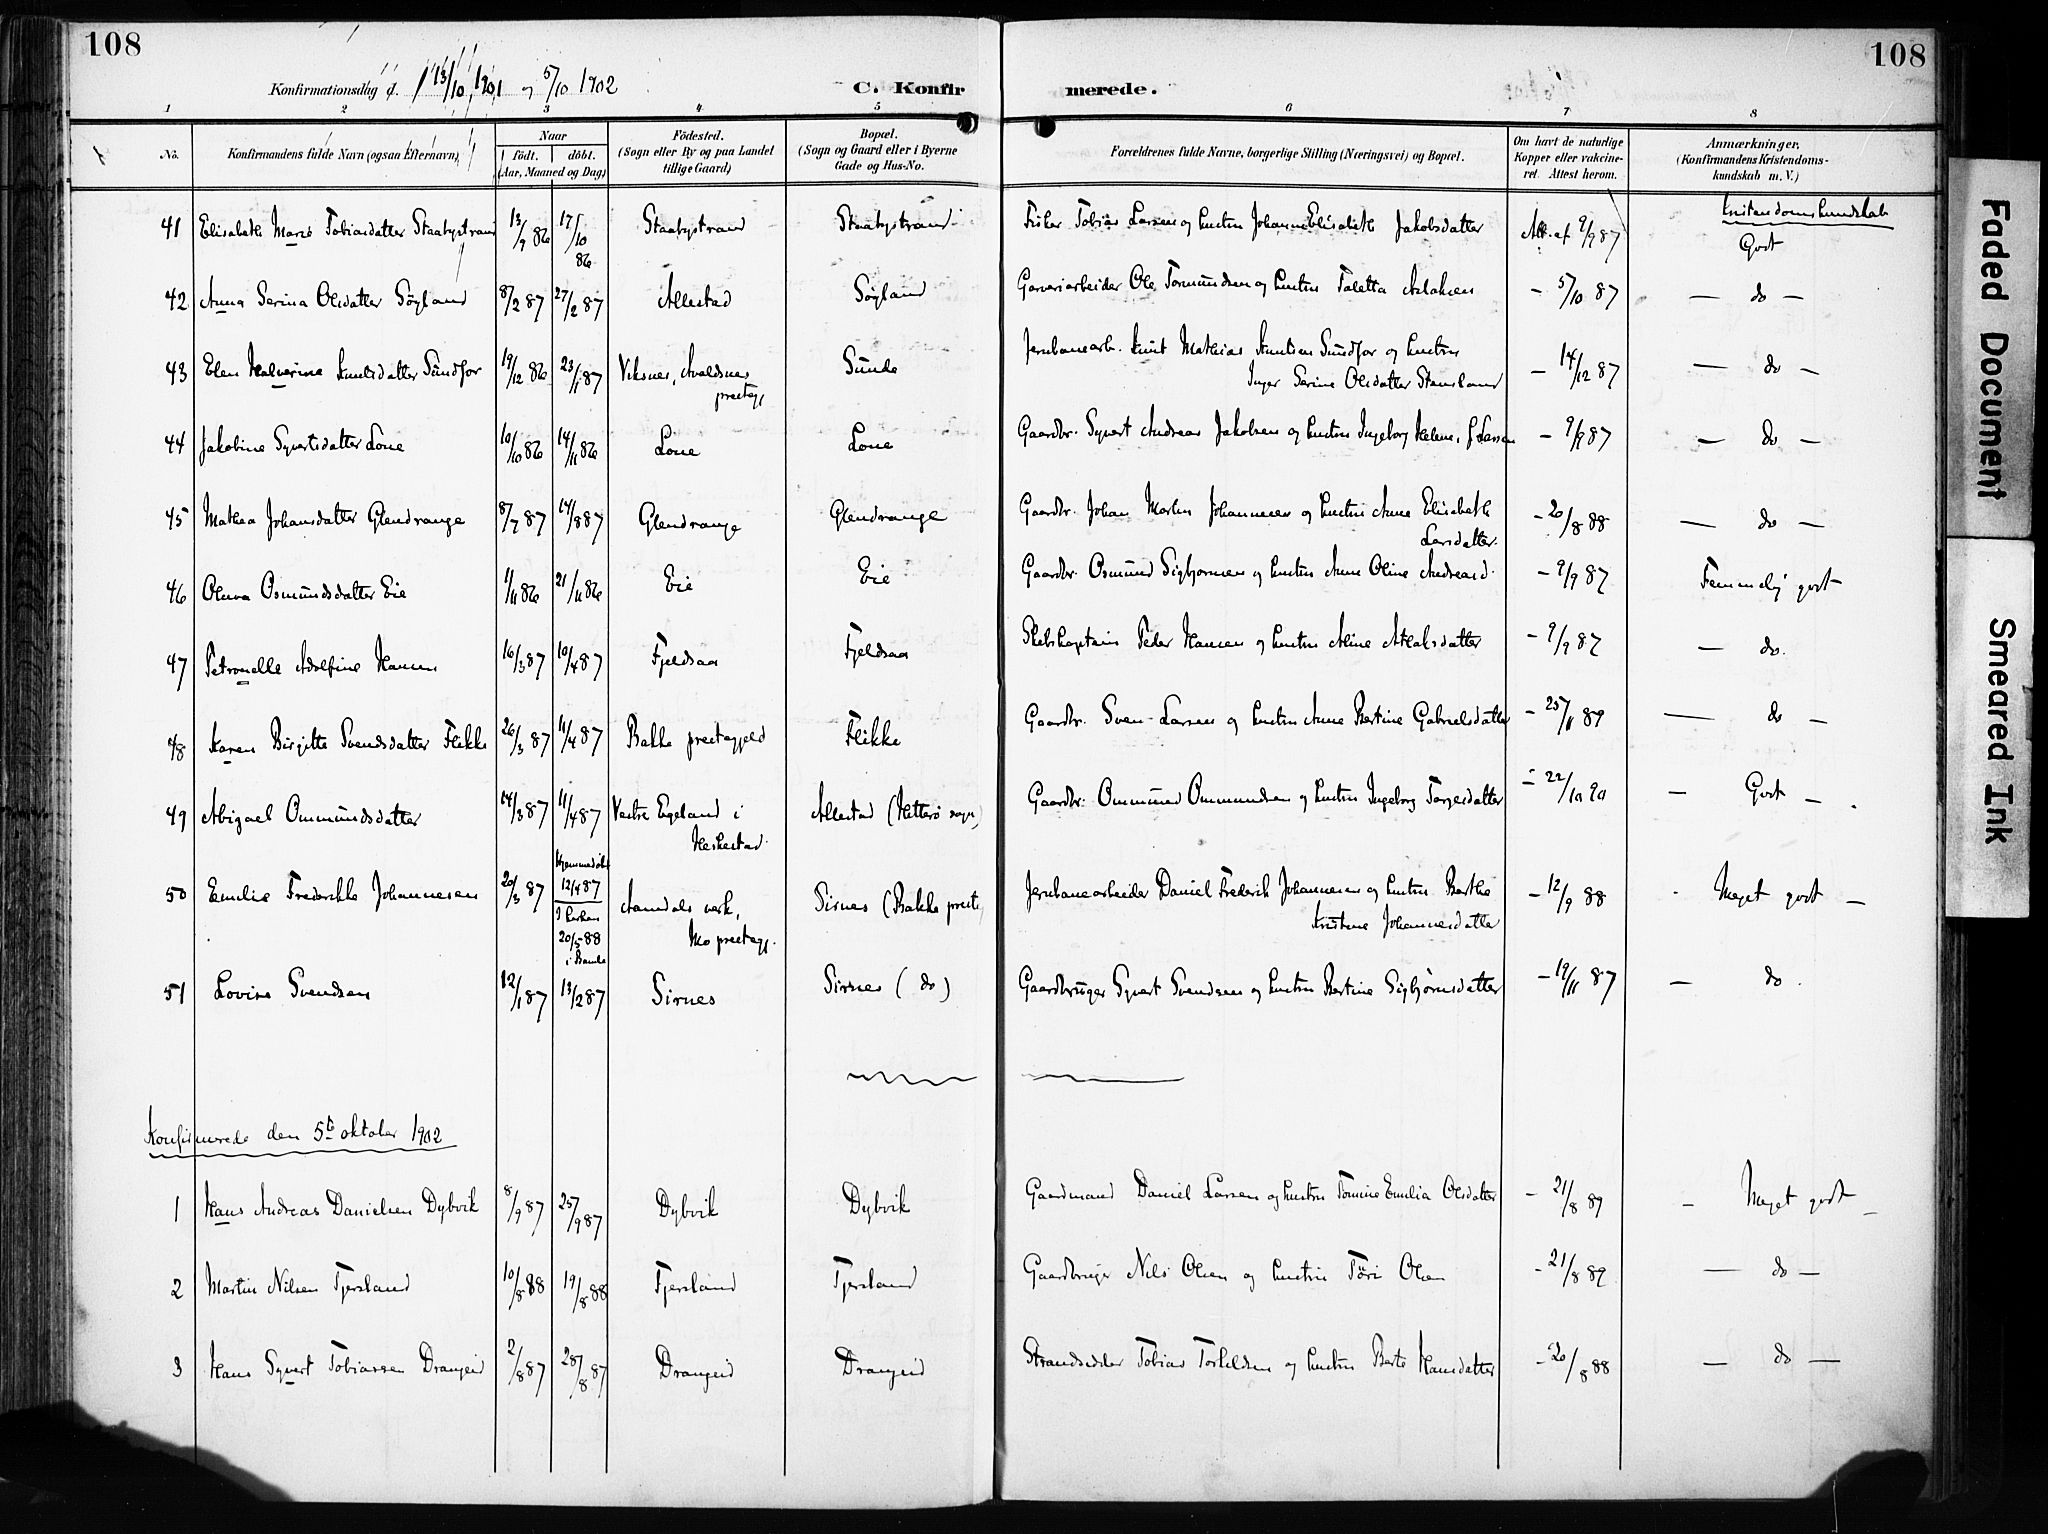 108
108
Konfirmationsdag d. 13/10 1901 og 5/10 1902
C. Konfirmerede.
1 2 3 4 5 6 7 8
No.
Konfirmandens fulde Navn (ogsaa Efternavn).
Naar
født. døbt.
(Aar, Maaned og Dag)
Födested.
(Sogn eller By og paa Landet tillige Gaard)
Bopæl.
(Sogn og Gaard eller i Byerne Gade og Hus-No.
Forældrenes fulde Navne, borgerlige Stilling (Næringsvei) og Bopæl.
Om havt de naturlige Kopper eller vakcineret. Attest herom.
Anmærkninger.
(Konfirmandens Kristendomskundskab m. V.)
Kristendomskundskab
41 Elisabeth Marie Tobiasdatter Staabystrand 13/9 86 17/10 86 Staabystrand Staabystrand Fisker Tobias Larsen og hustru Johanne Elisabeth Jakobsdatter Att. af 9/9 87 Godt
42 Anna Serina Olsdatter Søyland 8/2 87 27/2 87 Allestad Søyland Garveriarbeider Ole Tormundsen og hustru Taletta Aslaksen - 5/10 87 — do —
43 Elen Halverine Knutsdatter Sundfor 19/12 86 23/1 87 Viksnes, Avaldsnes prestegj. Sunde Jernbanearb. Knut Mathias Knutsen Sundfor og hustru
Inger Serine Olsdatter Stensland - 14/12 87 — do —
44 Jakobine Syvertsdatter Lone 10/10 86 14/11 86 Lone Lone Gaardbr. Syvert Andreas Jakobsen og hustru Ingeborg Helene, f. Larsen - 9/9 87 — do —
45 Mathea Johansdatter Glendrange 8/7 87 14/8 87 Glendrange Glendrange Gaardbr. Johan Martin Johannesen og hustru Anne Elisabeth
Larsdatter. - 20/8 88 — do —
46 Oluva Osmundsdatter Eie 1/11 86 21/11 86 Eie Eie Gaardbr. Osmund Sigbjørnsen og hustru Anne Oline Andreasd. - 9/9 87 Temmelig godt
47 Petronelle Adolfine Hansen 16/3 87 10/4 87 Fjeldsaa Fjeldsaa Skibskaptein Peder Hansen og hustru Aline Atlaksdatter - 9/9 87 — do.
48 Karen Birgitte Svendsdatter Flikke 26/3 87 11/4 87 Bakke prestegjeld Flikke Gaardbr. Sven Larsen og hustru Anne Bertine Gabrielsdatter - 25/11 89 — do —
49 Abigael Ommundsdatter 14/3 87 11/4 87 Vestre Egeland i Heskestad Allestad (Hitterø sogn) Gaardbr. Ommund Ommundsen og hustru Ingeborg Torgersdatter - 22/10 90 — Godt —
50 Emilie Frederikke Johannesen 20/3 87 Hjemmedøbt 12/4 87
I kirken
20/5 88
i Bamle Aamdals verk, Mo prestegj. Sirnes (Bakke prestg. Jernbanearbeider Daniel Frederik Johannesen og hustru Berthe
Kristine Johannesdatter - 12/9 88 Meget godt —
51 Lovise Svendsen 12/1 87 13/2 87 Sirnes Sirnes ( do ) Gaardbruger Syvert Svendsen og hustru Bertine Sigbjørnsdatter - 19/11 87 — do.
Konfirmerede den 5te oktober 1902
1 Hans Andreas Danielsen Dybvik 8/9 87 25/9 87 Dybvik Dybvik Gaardmand Daniel Larsen og hustru Tomine Emilia Olsdatter - 21/8 89 — Meget godt —
2 Martin Nilsen Tjersland 10/8 88 19/8 88 Tjersland Tjersland Gaardbruger Nils Olsen og hustru Töri Olsen - 21/8 89 — do —
3 Hans Syvert Tobiassen Drangeid 2/8 87 28/8 87 Drangeid Drangeid Strandsidder Tobias Torkildsen og hustru Berte Hansdatter - 20/8 88 — do —
Faded Document
Smeared Ink